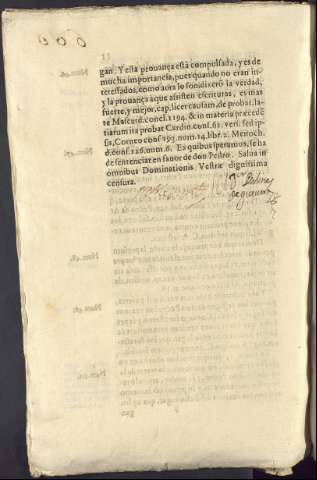 gan. Y esta prouança està compulsada, y es de
mucha importancia, pues quando no eran in-
teressados, como aora lo son dixerõ la verdad,
y la prouança a que assisten escrituras, es mas
fuerte, y mejor, cap. licet causam, de probat. la-
te Mascard. concl. 1194. & in materia præcedẽ
tiarum ita probat Cardin. cons. 62. vers. sed ip-
sa, Corneo cons. 193. num. 14. libr. 2. Menoch.
d. cons. 126. num. 6. Ex quibus speramus, se ha
de sentenciar en fauor de don Pedro. Salua in
omnibus Dominationis Vestræ dignissima
censura.